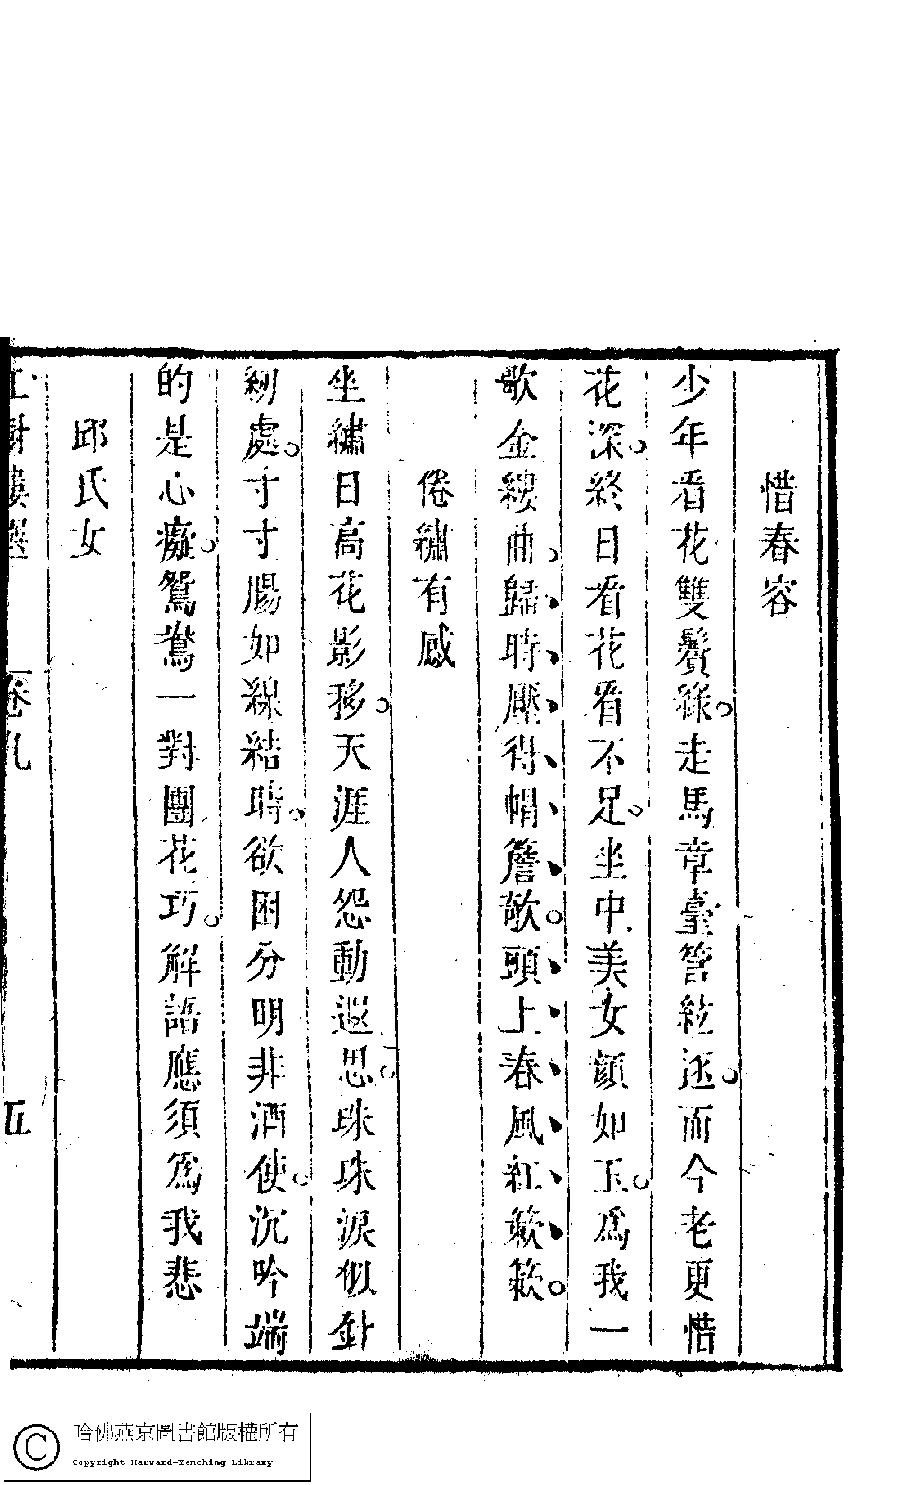 惜春容
少年看花雙鬢綠。走馬章臺管絃逐。而今老更惜
花深。終日看花看不足。坐中美女顏如玉。爲我一
歌金縷曲。歸時壓得帽簷欹。頭上春風紅簌簌。
倦繡有感
坐繡日高花影移。天涯人怨動遐思。珠珠淚似針
紉處。寸寸腸如線結時。欲困分明非酒使。沉吟端
的是心癡。鴛鴦一對團花巧。解語應須爲我悲
邱氏女
卷九
五
哈佛燕京圖書館版權所有
Copyright Harvard-Yenching Library